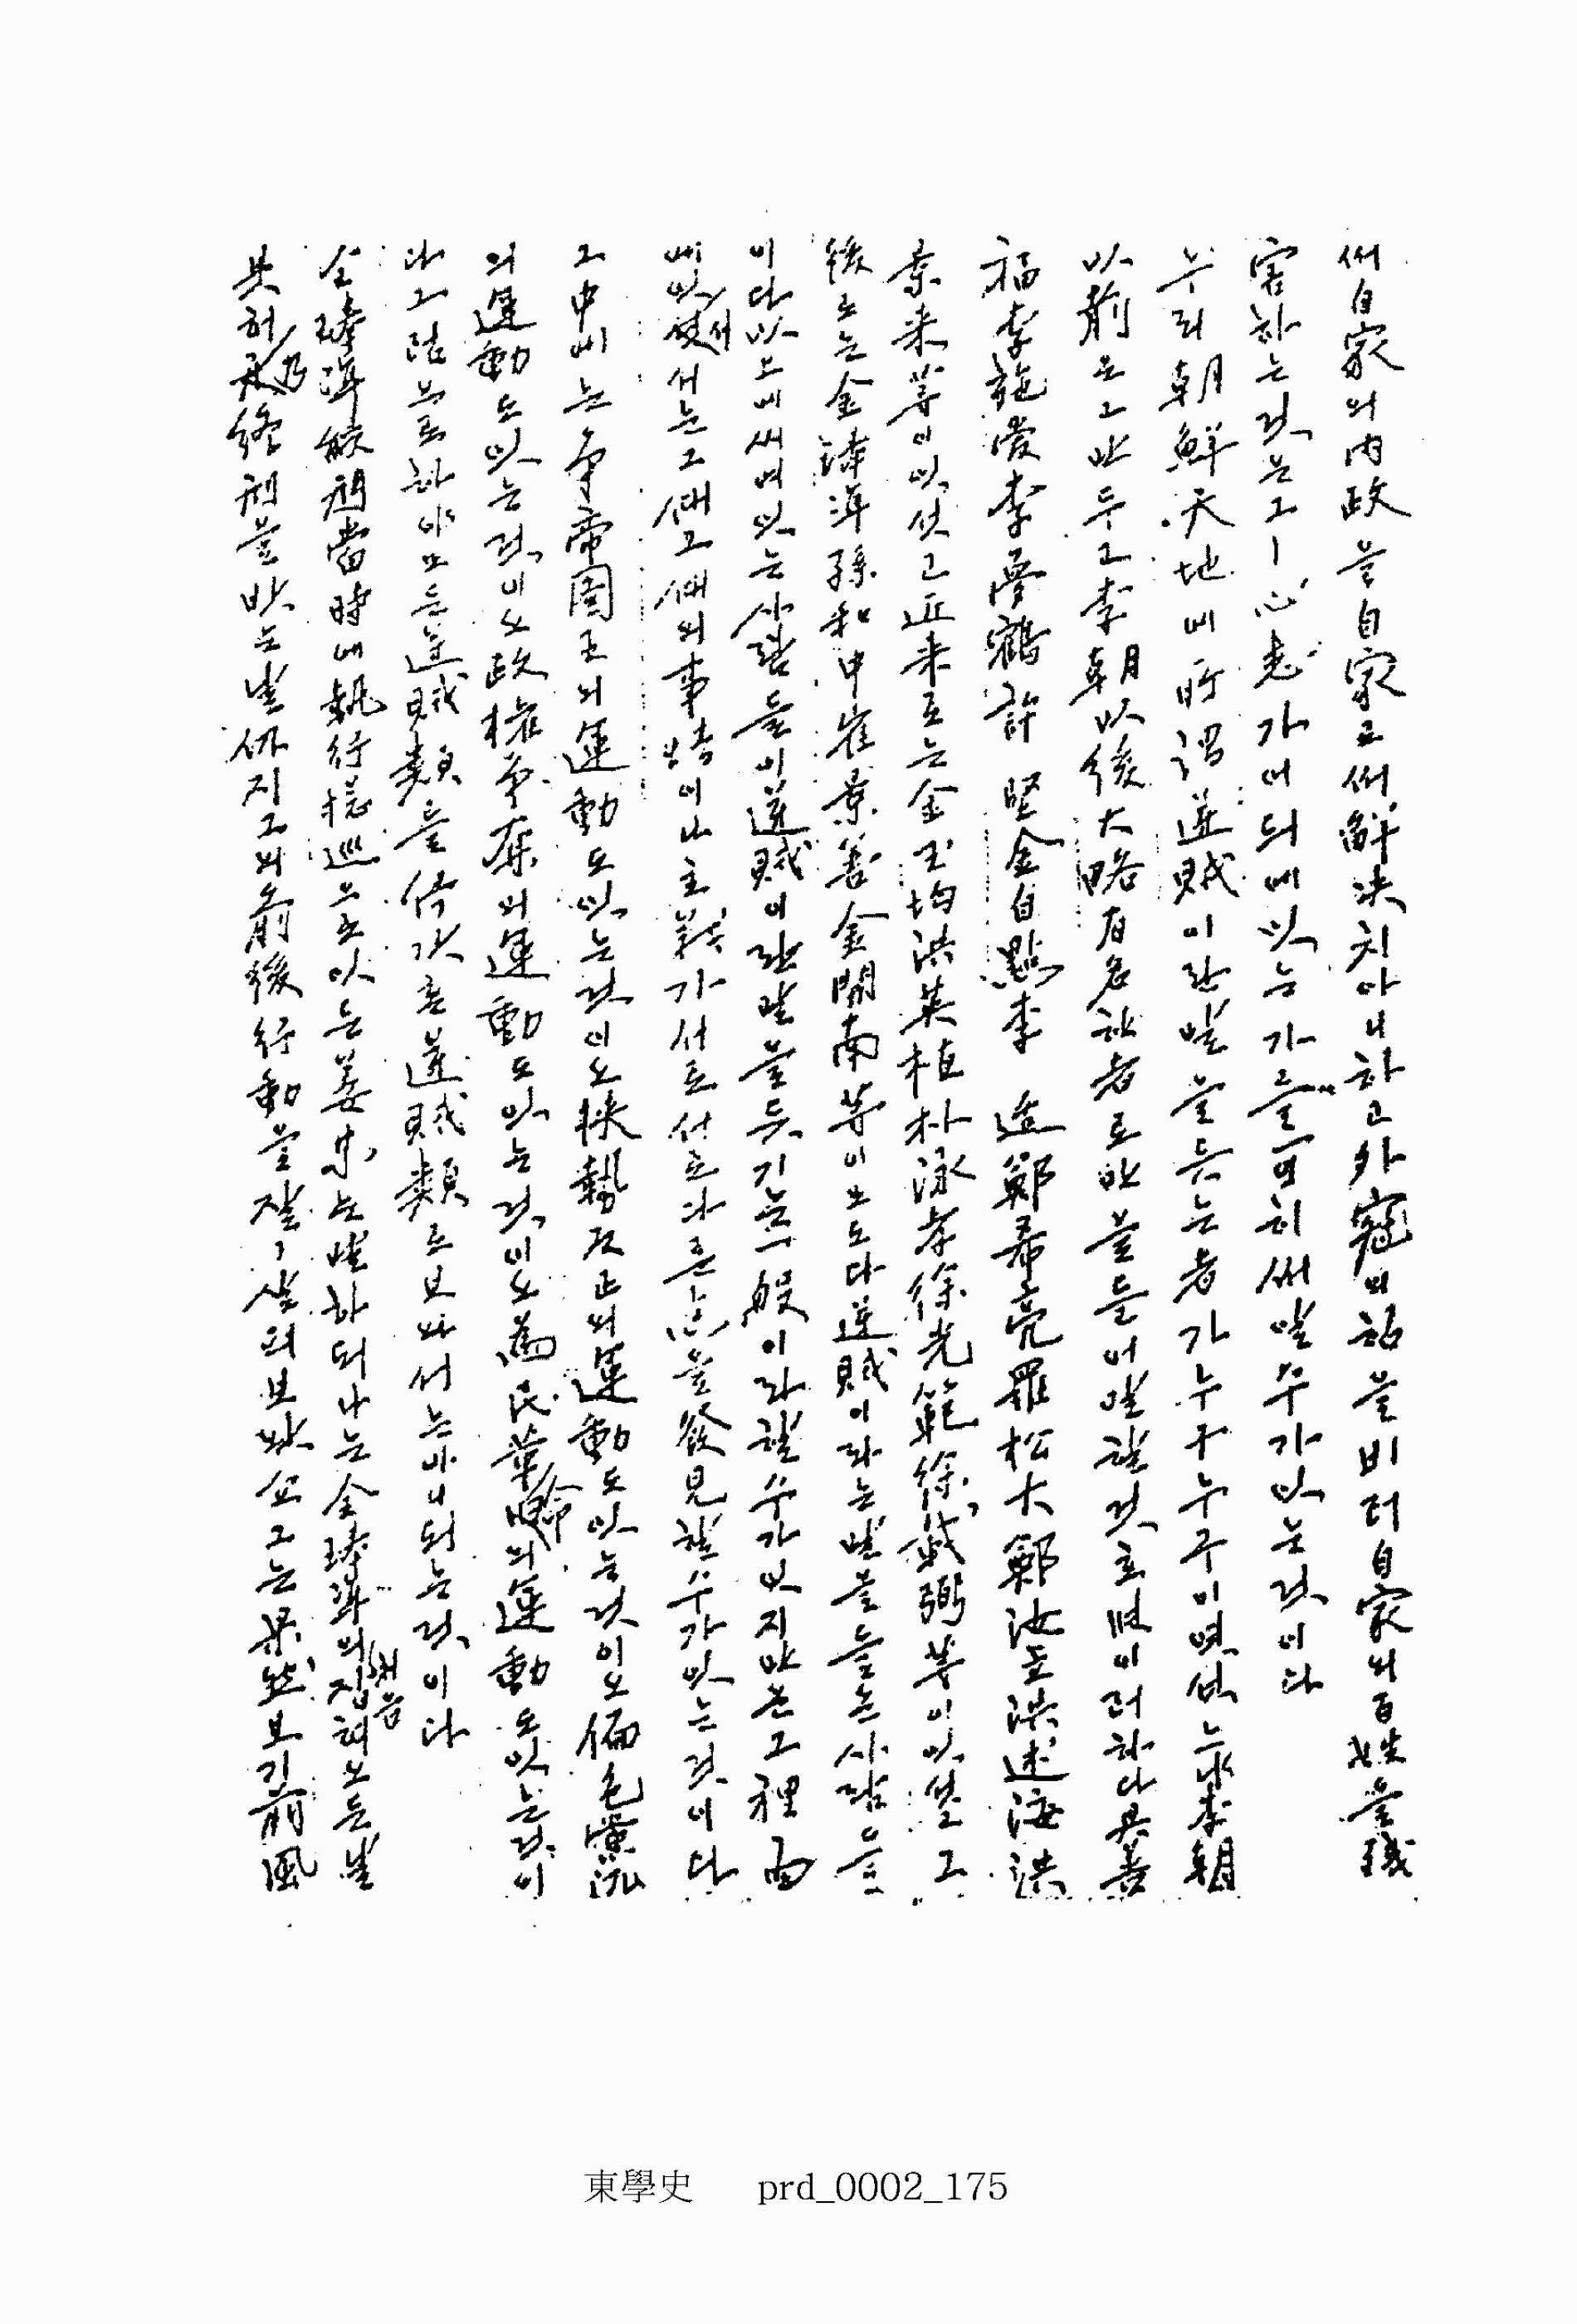 써 自家의 內政을 自家로써 解決치 아니하고 外寇의 힘을 비러 自家의 百姓을 殘
害하는 것은 그 ㅣ 心志가 어듸에 잇는가를 可히써 알 수가 잇는 것이다
우리 朝鮮天地에 所謂 逆賊이란 말을 듯는 者가 누구누구이엿섯느냐 李朝
以前은 그만두고 李朝以後 大略 有名한 者로만 들어 말할 것 이러하다 其善
福 李施愛 李夢鶴 許 堅 金自點 李 适 鄭希亮 羅松大 鄭汝立 洪述海 洪
景来等이 잇섯고 近来로는 金玉均 洪英植 朴泳孝 徐光範 徐載弼等이 잇섯고 그
後로는 金琫準 孫和中 崔景善 金開南等이 다 逆賊이라는 말을 들은 사람들
이다 以上에 써여 잇는 사람들이 逆賊이란 말을 듯기는 一般이라 할 수가 잇지만은 그 裡面
에 잇서서는 그 때 그 때의 事情이나 主義가 서로 서로 다른 点을 發見할 수가 잇는 것이다
그 中에는 爭帝圖王의 運動도 잇는 것이오 挾勢反正의 運動도 잇는 것이오 偏色黨派
의 運動도 잇는 것이오 政權爭奪의 運動도 잇는 것이오 爲民革命의 運動도 잇는 것이
다 모든 逆賊類를 갓흔 逆賊類로 보와서는 아니되는 것이다
全琫準 絞刑 當時에 執行總巡으로 잇는 姜 는 말하되 나는 全琫準의 처음 집혀오든 날
부터 乃終 刑을 밧는 날까지 그의 前後 行動을 잘 살펴 보앗소 그는 果然 보기 前 風